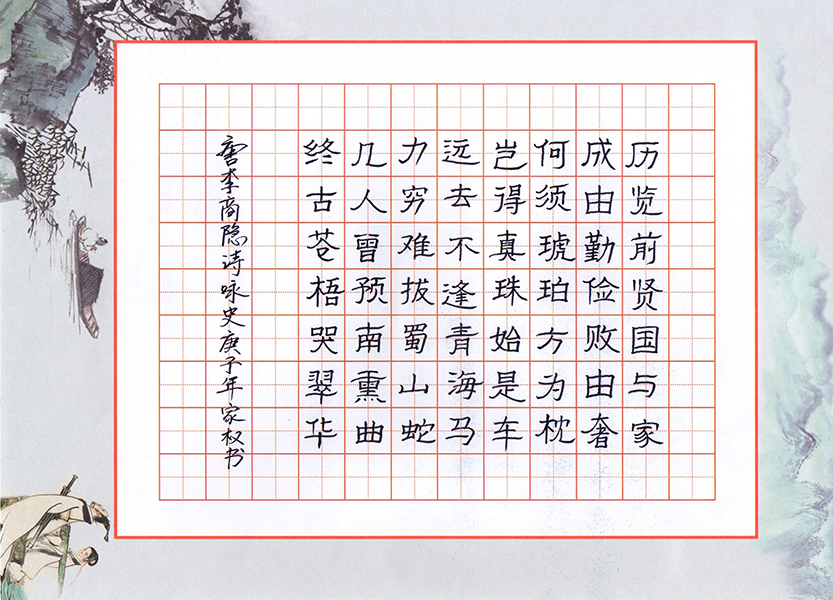 历览前贤国与家
成由勤俭败由奢
何须琥珀方为枕
岂得真珠始是车
远去不逢青海马
力穷难拔蜀山蛇
几人曾预南熏曲
终古苍梧哭翠华
唐李商隐诗咏史庚子年家权书